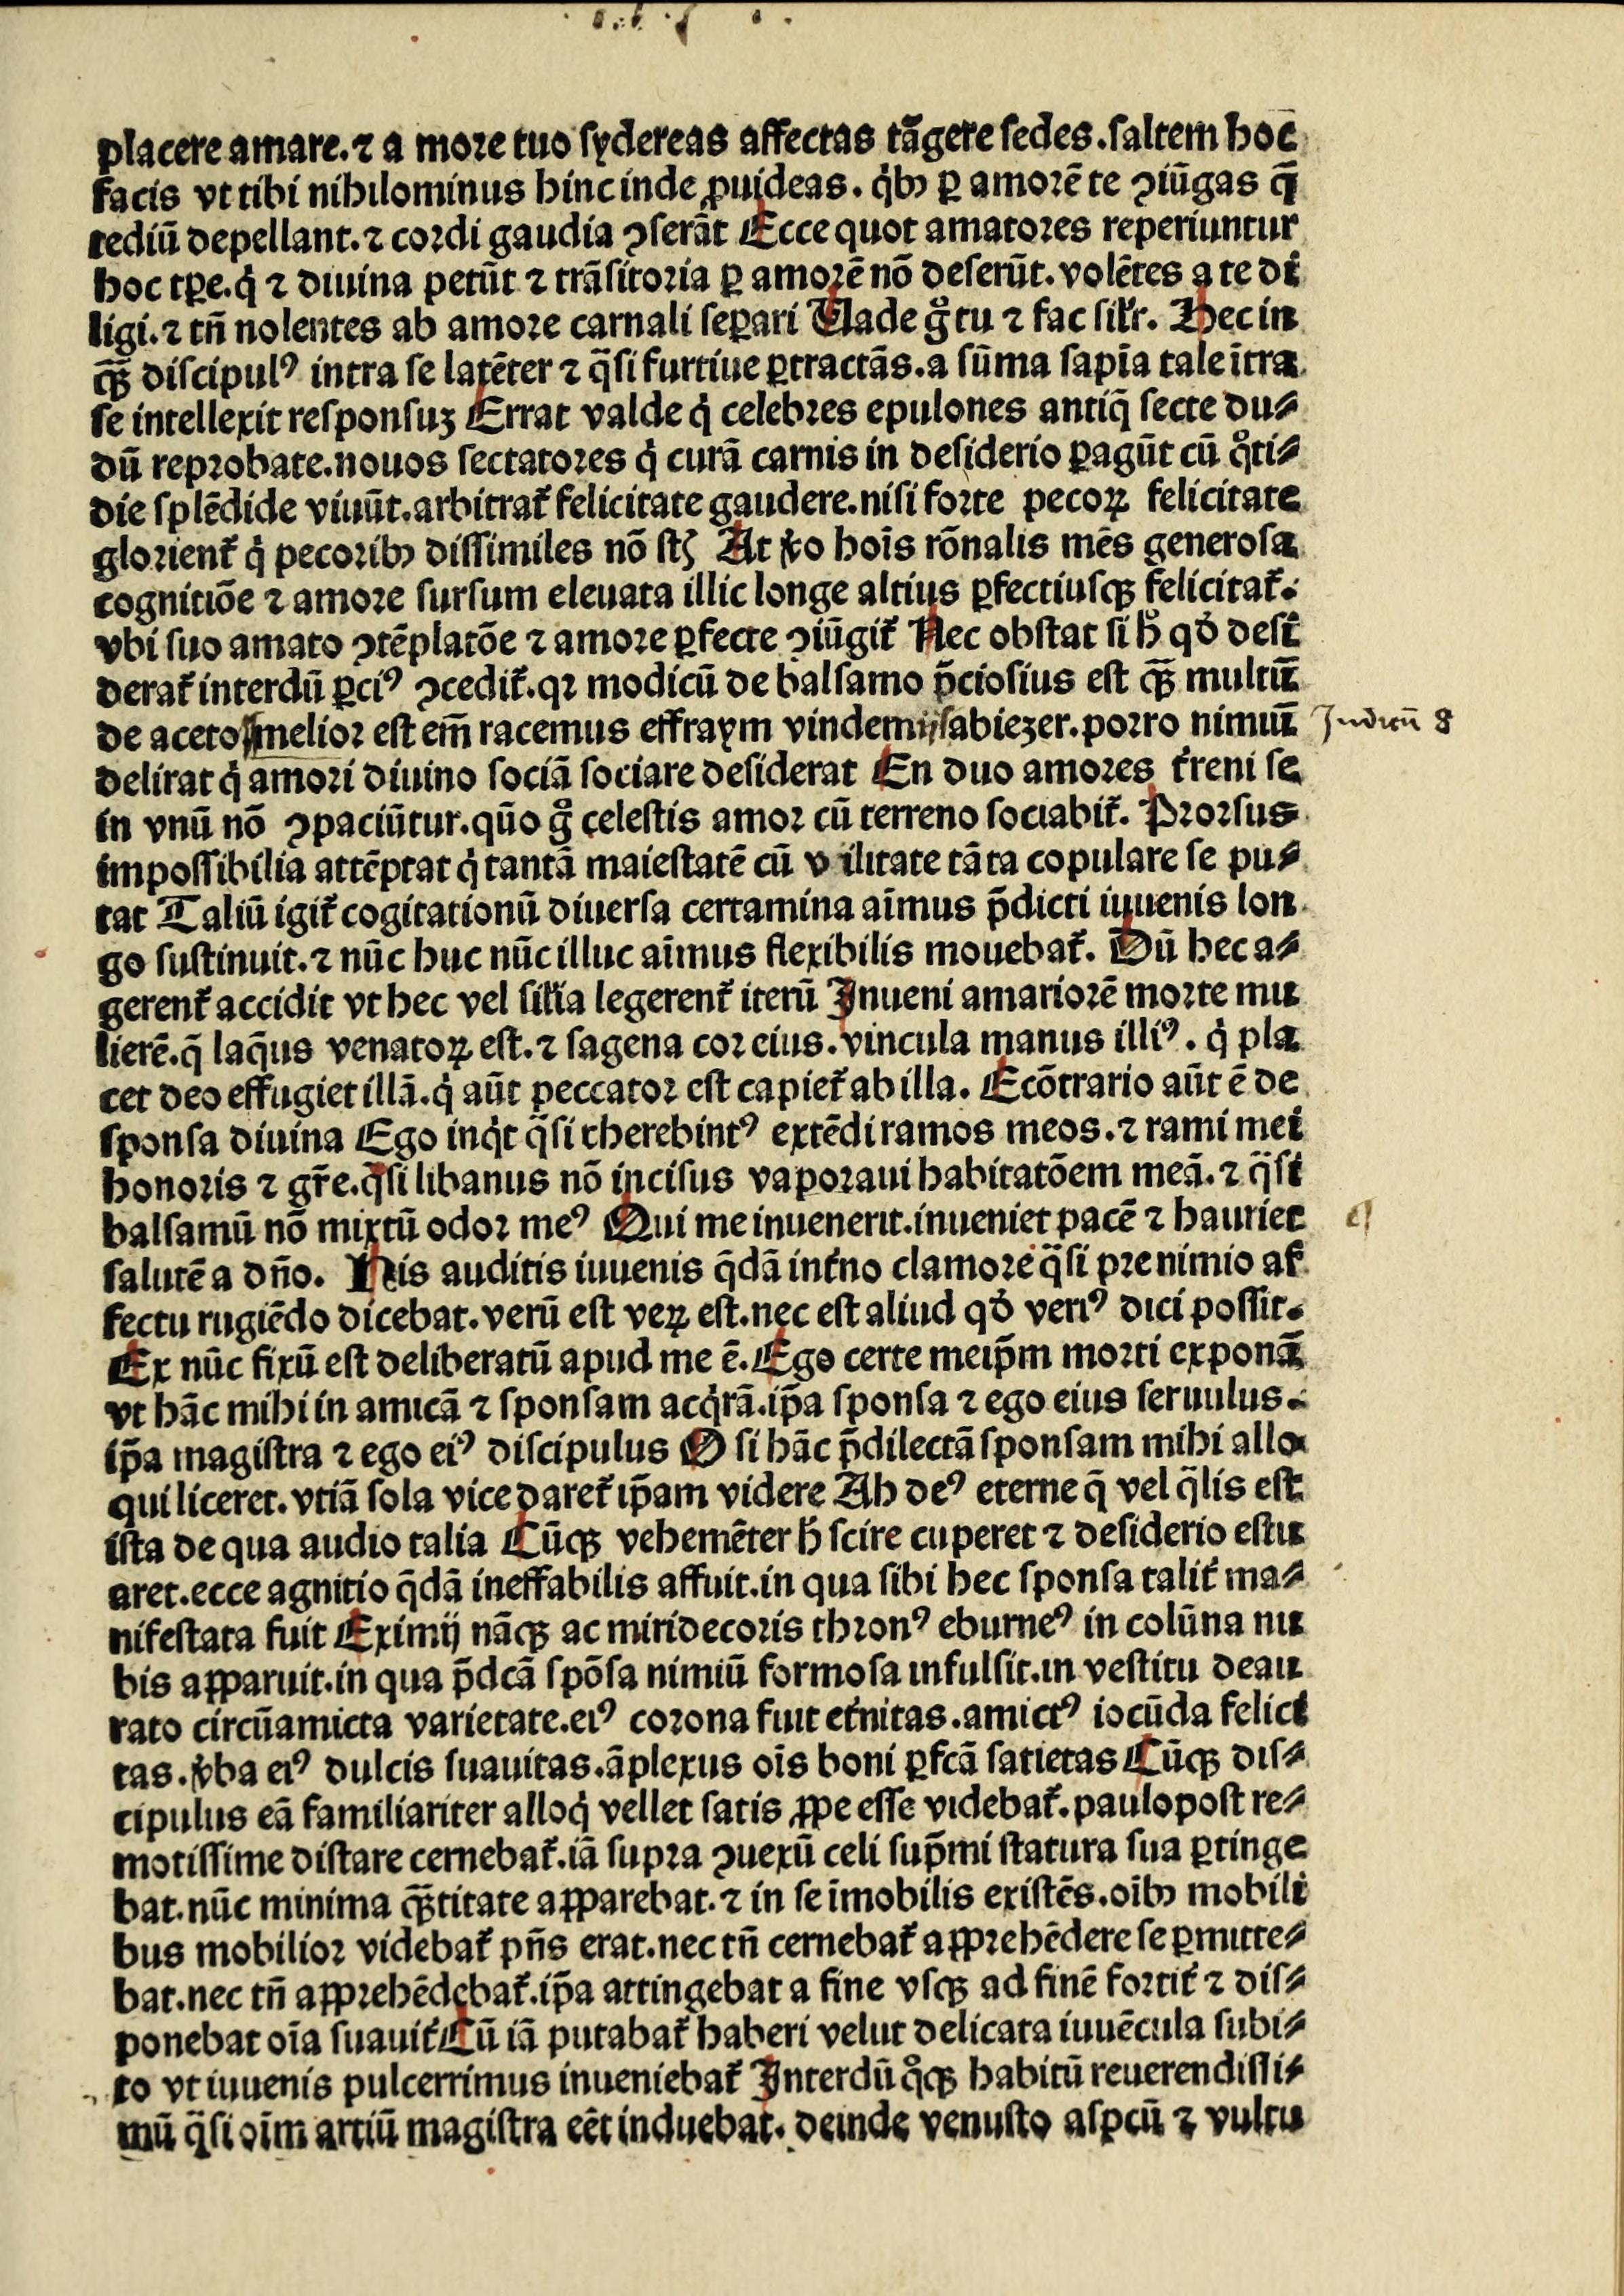 placere amare.⁊ a more tuo ſydereas affectas tāgere ſedes.ſaltem hoc
facis vt tibi nihilominus hinc inde ꝓuideas. q̇bꝫ ꝑ amorē te ꝯiūgas q̄
tediū depellant.⁊ cordi gaudia ꝯſerāt Ecce quot amatores reperiuntur
hoc tꝑe.q̇ ⁊ diuina petūt ⁊ trāſitoria ꝑ amorē nō deſerūt.volētes a te di
ligi.⁊ tn̄ nolentes ab amore carnali ſeꝑari Uade gͦ tu ⁊ fac ſilr̄. Hec in
qꝫ̄ diſcipulꝰ intra ſe latēter ⁊ q̄ſi furtiue ꝑtractās.a ſūma ſapīa tale ītra
ſe intellexit reſponſuꝫ Errat valde q̇ celebres epulones antiq̄ ſecte du⸗
dū reprobate.nouos ſectatores q̇ curā carnis in deſiderio ꝑagūt cū qͦti⸗
die ſplēdide viuūt.arbitrat᷑ felicitate gaudere.niſi forte pecoꝝ felicitate
glorient᷑ q̇ pecoribꝫ diſſimiles nō ſtꝫ At v̓o hoīs rōnalis mēs generoſa
cognitiōe ⁊ amore ſurſum eleuata illic longe altius ꝑfectiuſqꝫ felicitat᷑.
vbi ſuo amato ꝯtēplatōe ⁊ amore ꝑfecte ꝯiūgit᷑ Nec obſtat ſi hͦ qd̓ deſi
derat᷑ interdū ꝑciꝰ ꝯcedit᷑.qꝛ modicū de balſamo p̄cioſius eſt qꝫ̄ multū
de aceto melior eſt em̄ racemus effraym vindemijſabiezer.porro nimiū
Judicū 8
delirat q̇ amori diuino ſociā ſociare deſiderat En duo amores t̓reni ſe
in vnū nō ꝯpaciūtur.quō gͦ celeſtis amor cū terreno ſociabit᷑. Prorſus
impoſſibilia attēptat q̇ tantā maieſtatē cū v ilitate tāta copulare ſe pu⸗
tat Taliū igit᷑ cogitationū diuerſa certamina aīmus p̄dicti iuuenis lon
go ſuſtinuit.⁊ nūc huc nūc illuc aīmus flexibilis mouebat᷑. Dū hec a⸗
gerent᷑ accidit vt hec vel ſilīa legerent᷑ iterū Inueni amariorē morte mu
lierē.q̄ laq̄us venatoꝝ eſt.⁊ ſagena cor eius.vincula manus illiꝰ. q̇ pla
cet deo effugiet illā.q̇ aūt peccator eſt capiet᷑ ab illa. Ecōtrario aūt ē de
ſponſa diuina Ego inq̇t q̄ſi therebintꝰ extēdi ramos meos.⁊ rami mei
honoris ⁊ gr̄e.q̄ſi libanus nō inciſus vaporaui habitatōem meā.⁊ q̄ſi
balſamū nō mixtū odor meꝰ Qui me inuenerit.inueniet pacē ⁊ hauriet
ſalutē a dn̄o. His auditis iuuenis q̄dā int̓no clamore q̄ſi pre nimio af
fectu rugiēdo dicebat.verū eſt veꝝ eſt.nec eſt aliud qd̓ veriꝰ dici poſſit.
Ex nūc fixū eſt deliberatū apud me ē.Ego certe meip̄m morti exponā
vt hāc mihi in amicā ⁊ ſponſam acq̇rā.ip̄a ſponſa ⁊ ego eius ſeruulus.
ip̄a magiſtra ⁊ ego eiꝰ diſcipulus O ſi hāc p̄dilectā ſponſam mihi allo
qui liceret.vtiā ſola vice daret᷑ ip̄am videre Ah deꝰ eterne q̄ vel q̄lis eſt
iſta de qua audio talia Cūqꝫ vehemēter hͦ ſcire cuperet ⁊ deſiderio eſtu
aret.ecce agnitio q̄dā ineffabilis affuit.in qua ſibi hec ſponſa talit᷑ ma⸗
nifeſtata fuit Eximij nāqꝫ ac miri decoris thronꝰ eburneꝰ in colūna nu
bis apparuit.in qua p̄dcā ſpōſa nimiū formoſa infulſit.in veſtitu deau
rato circūamicta varietate.eiꝰ corona fuit et̓nitas.amictꝰ iocūda felici
tas.v̓ba eiꝰ dulcis ſuauitas.āplexus oīs boni ꝑfcā ſatietas Cūqꝫ diſ⸗
cipulus eā familiariter alloq̇ vellet ſatis ꝓpe eſſe videbat᷑.paulopoſt re⸗
motiſſime diſtare cernebat᷑.iā ſupra ꝯuexū celi ſup̄mi ſtatura ſua ꝑtinge
bat.nūc minima qꝫ̄titate apparebat.⁊ in ſe īmobilis exiſtēs.oībꝫ mobili
bus mobilior videbat᷑ pn̄s erat.nec tn̄ cernebat᷑ apprehēdere ſe ꝑmitte⸗
bat.nec tn̄ apprehēdebat᷑.ip̄a attingebat a fine vſqꝫ ad finē fortit᷑ ⁊ diſ⸗
ponebat oīa ſuauit᷑ Cū iā putabat᷑ haberi velut delicata iuuēcula ſubi⸗
to vt iuuenis pulcerrimus inueniebat᷑ Interdū qͦqꝫ habitū reuerendiſſi⸗
mū q̄ſi oīm artiū magiſtra eēt induebat. deinde venuſto aſpcū ⁊ vultu